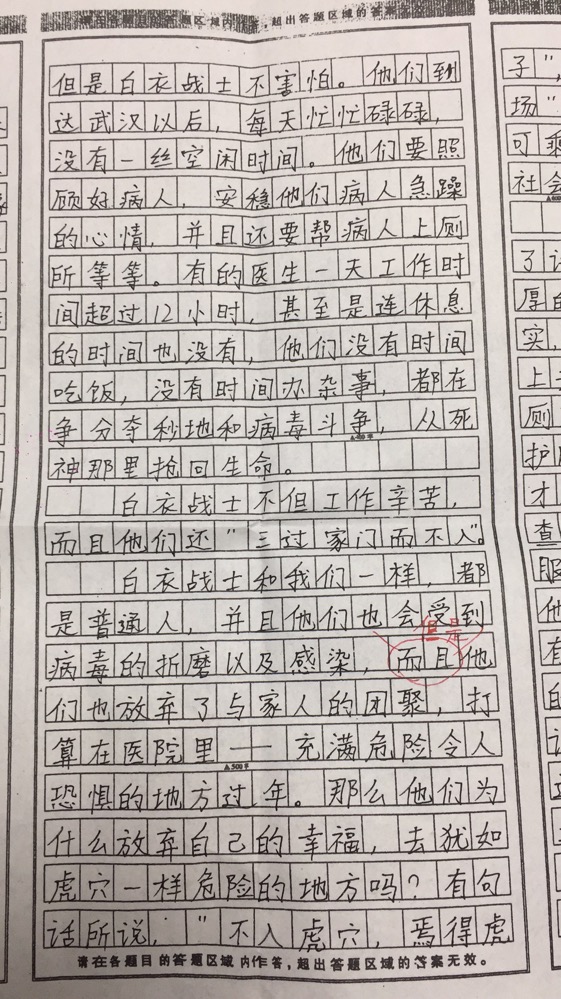 请在各题目的答题区域内作答,超出答题区域的答案
但是白衣战士不害怕。他们到
达武汉以后，每天忙忙碌碌，
没有一丝空闲时间。他们要照
顾好病人，安稳他们病人急躁
的心情，并且还要帮病人上厕
所等等。有的医生一天工作时
间超过12小时，甚至是连休息
的时间也没有，他们没有时间
吃饭，没有时间办杂事，都在
争分夺秒地和病毒斗争，从死
▲400字
神那里抢回生命。
白衣战士不但工作辛苦，
而且他们还"三过家门而不入"。
白衣战士和我们一样，都
是普通人，并且他们也会受到
但是
病毒的折磨以及感染，而且他
们也放弃了与家人的团聚，打
算在医院里——充满危险令人
▲500字
恐惧的地方过年。那么他们为
什么放弃自己的幸福，去犹如
虎穴一样危险的地方吗？有句
话所说，"不入虎穴，焉得虎
请在各题目的答题区域内作答,超出答题区域的答案无效。
子"，
场"
可剩
社会
了
厚的
实，
上
厕
护
才
查
服
他
有
的